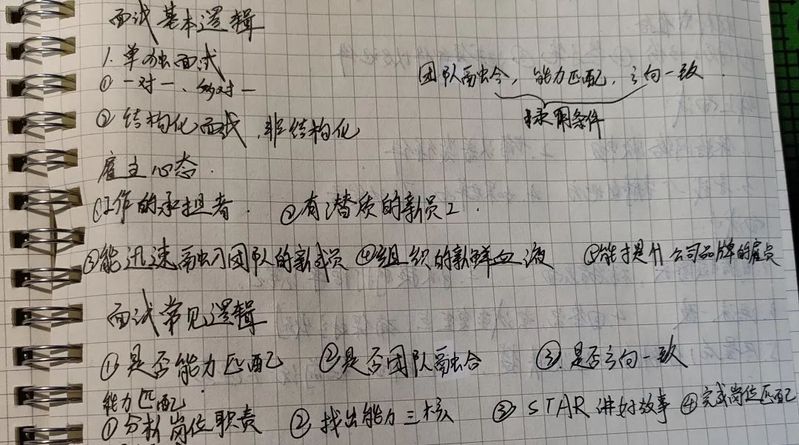 面试基本逻辑
1.单独面试
①一对一、多对一
团队融合，能力匹配，方向一致.
录用条件
②结构化面试，非结构化
雇主心态.
①工作的承担者. ②有潜质的新员工.
③能迅速融入团队的新成员 ④组织的新鲜血液 ⑤能提升公司品牌的雇员
面试常见逻辑
①是否能力匹配 ②是否团队融合 ③.是否方向一致
能力匹配
①分析岗位职责 ②找出能力三核 ③STAR讲好故事 ④完成岗位匹配